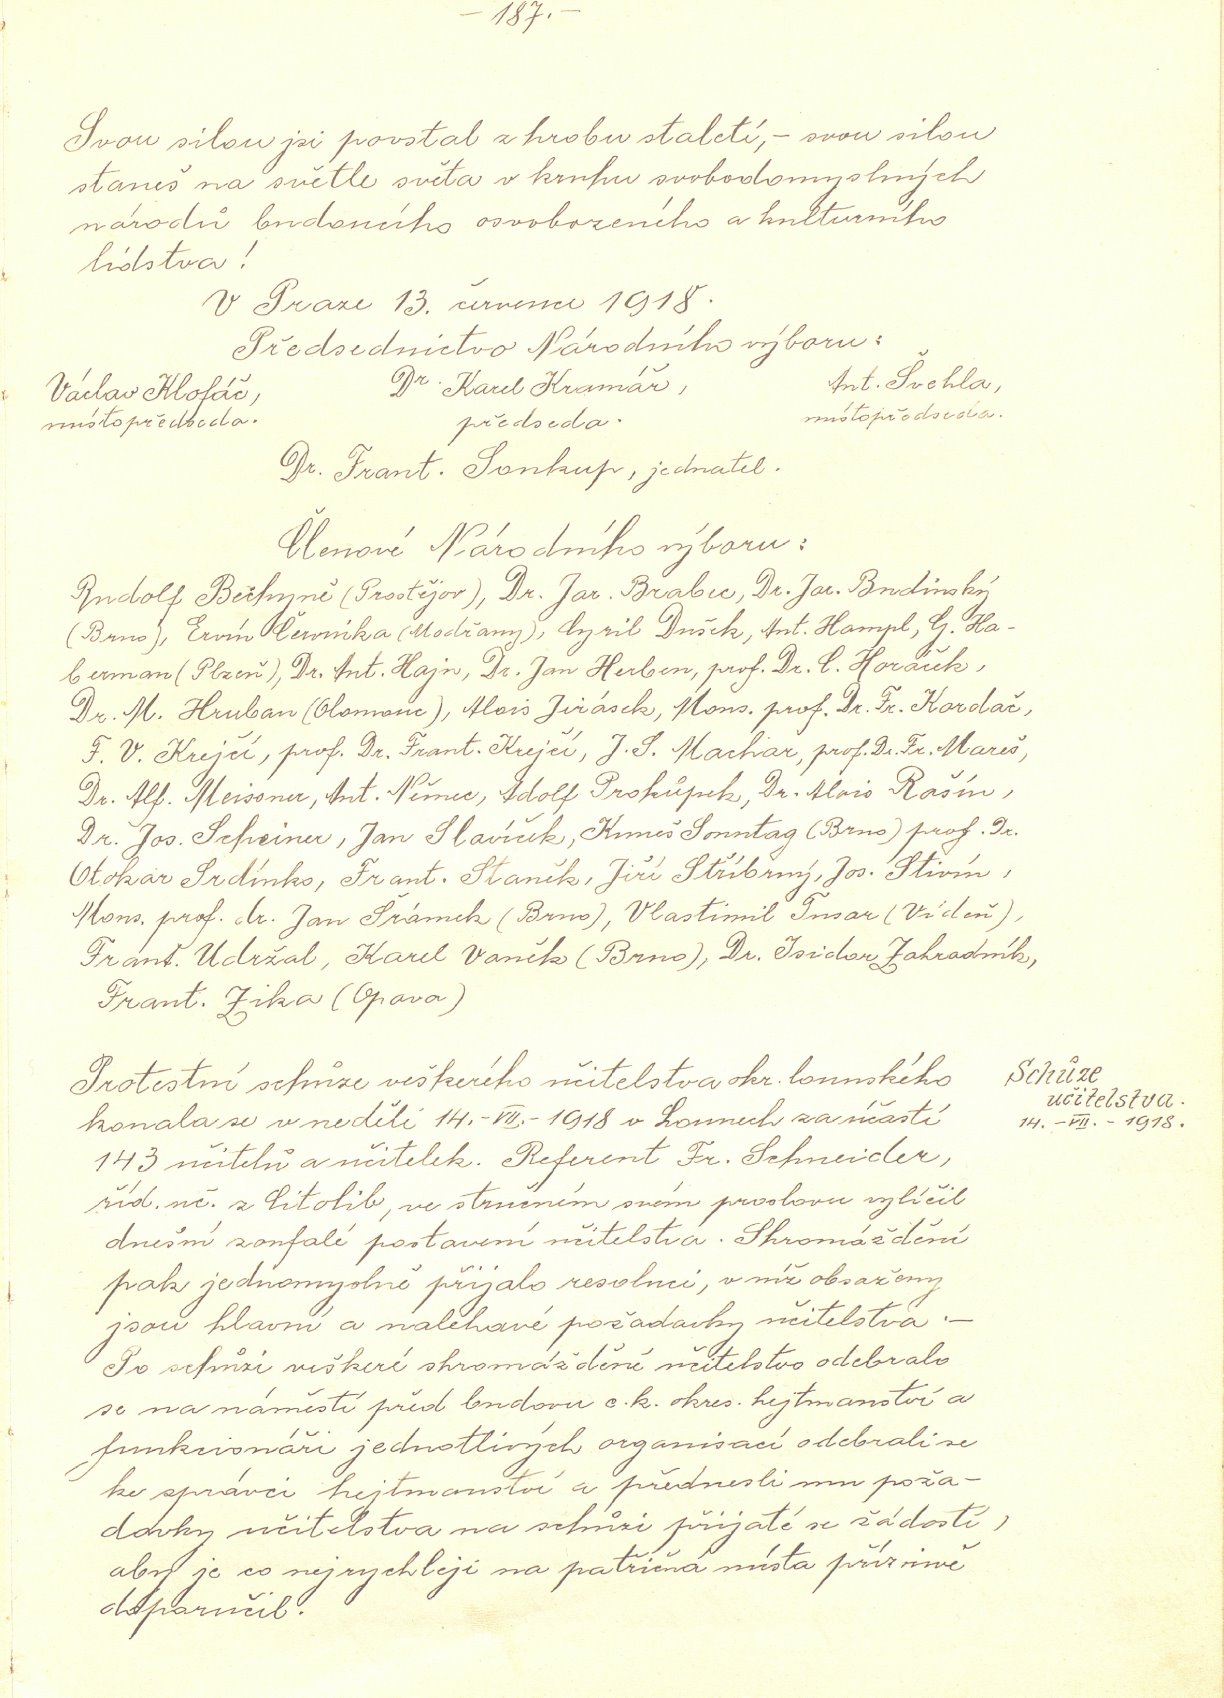 – 187. –
Svou silou jsi povstal z hrobu staletí, – svou silou
staneš na světle světa v kruhu svobodomyslných
národů budoucího osvobozeného a kulturního
lidstva!
V Praze 13. července 1918.
Předsednictvo Národního výboru:
Václav Klofáč, Dr. Karel Kramář, Ant. Švehla,
místopředseda. předseda. místopředseda.
Dr. Frant. Soukup, jednatel.
Členové Národního výboru:
Rudolf Bechyně (Prostějov), Dr. Jar. Brabec, Dr. Jar. Budínský
(Brno), Ervín Červinka (Modřany), Cyril Dušek, Ant. Hampl, G. Ha-
berman (Plzeň), Dr. Ant. Hajn, Dr. Jan Herben, prof. Dr. C. Horáček,
Dr. M. Hruban (Olomouc), Alois Jirásek, Mons. prof. Dr. Fr. Kordač,
F. V. Krejčí, prof. Dr. Frant. Krejčí, J. S. Machar, prof. Dr. Fr. Mareš,
Dr. Alf. Meissner, Ant. Němec, Adolf Prokůpek, Dr. Alois Rašín,
Dr. Jos. Scheiner, Jan Slavíček, Kuneš Sonntag (Brno) prof. Dr.
Otokar Srdínko, Frant. Staněk, Jiří Stříbrný, Jos. Stivín,
Mons. prof. dr. Jan Šrámek (Brno), Vlastimil Tusar (Vídeň),
Frant. Udržal, Karel Vaněk (Brno), Dr. Isidor Zahradník,
Frant. Zika (Opava)
Protestní schůze veškerého učitelstva okr. lounského
konala se v neděli 14.-VII.-1918 v Lounech za účasti
143 učitelů a učitelek. Referent Fr. Schneider,
říd. uč. z Citolib, ve stručném svém proslovu vylíčil
dnešní zoufalé postavení učitelstva. Shromáždění
pak jednomyslně přijalo resoluci, v níž obsaženy
jsou hlavní a naléhavé požadavky učitelstva. –
Po schůzi veškeré shromážděné učitelstvo odebralo
se na náměstí před budovu c. k. okres. hejtmanství a
funkcionáři jednotlivých organisací odebrali se
ke správci hejtmanství a přednesli mu poža-
davky učitelstva na schůzi přijaté se žádostí,
aby je co nejrychleji na patřičná místa příznivě
doporučil.
Schůze
učitelstva.
14.-VII.-1918.